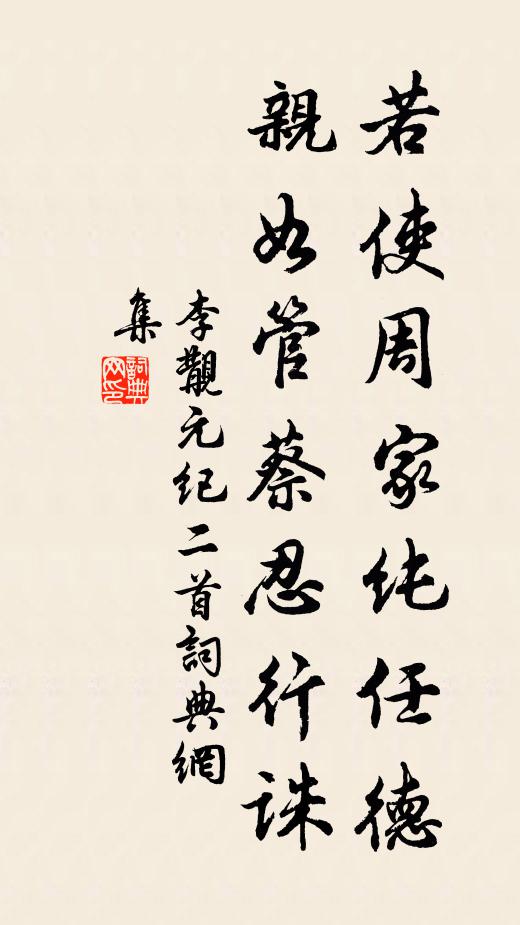 若使周家纯任德
親如管蔡忍行誅
李覯元纪二首詞典網
集
詞典
网印